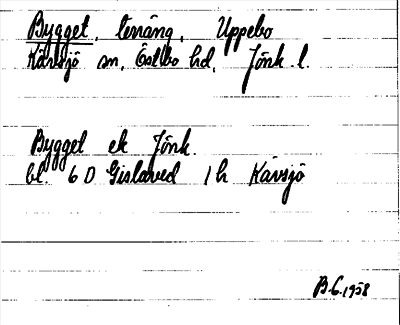 Bygget, terräng, Uppebo
Kävsjö sn, Östbo hd, Jönk. l.
Bygget ek Jönk.
bl. 6 D Gislaved 1 h Kävsjö
B.G. 1958